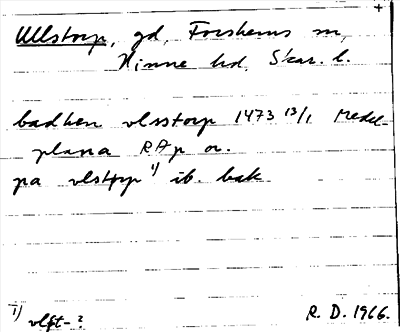 +
Ullstorp, gd, Forshems sn,
Kinne hd, Skar. l.
badhen vlsstorp 1473 13/1 Medel-
plana RAp or.
pa vlstorp 1) ib. bak
1) vlſt- ?
R. D. 1966.